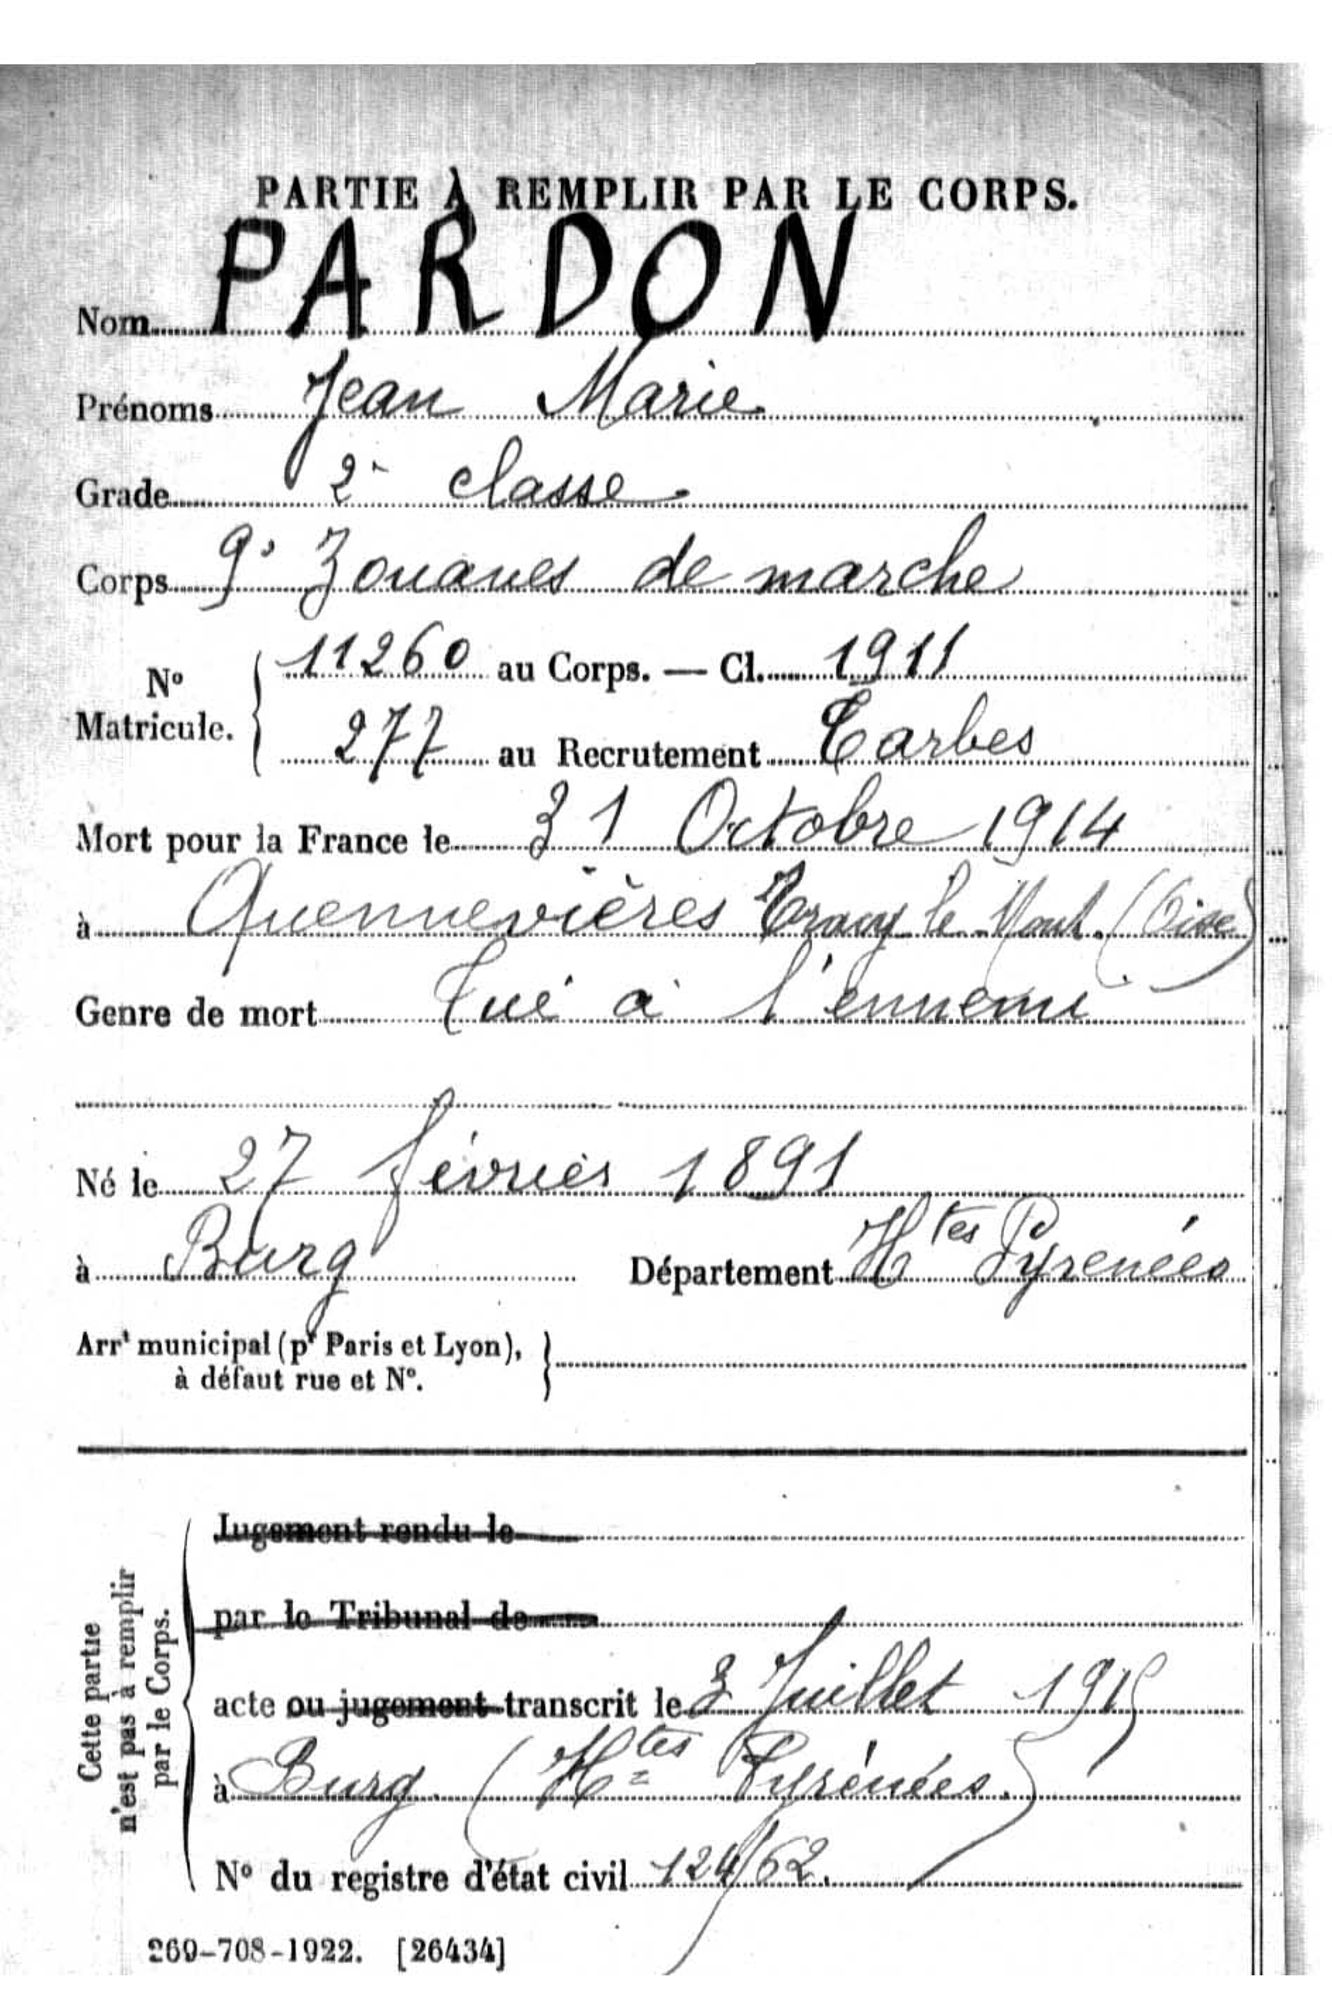 PARTIE À REMPLIR PAR LE CORPS.
Nom PARDON
Prénoms Jean Marie
Grade 2e classe
Corps 9e Zouaves de marche
No Matricule. { 11260 au Corps. — Cl. 1911
277 au Recrutement Tarbes
Mort pour la France le 31 Octobre 1914
à Quennevières Tracy le Mont. (Oise)
Genre de mort Tué à l'ennemi
Né le 27 février 1891
à Burg Département Htes Pyrenées
Arrt municipal (pr Paris et Lyon), à défaut rue et N°. }
Cette partie n'est pas à remplir par le Corps.
Jugement rendu le
par le Tribunal de
acte ou jugement transcrit le 3 Juillet 1915
à Burg. (Htes Pyrénées.)
N° du registre d'état civil 124/62.
269-708-1922. [26434]